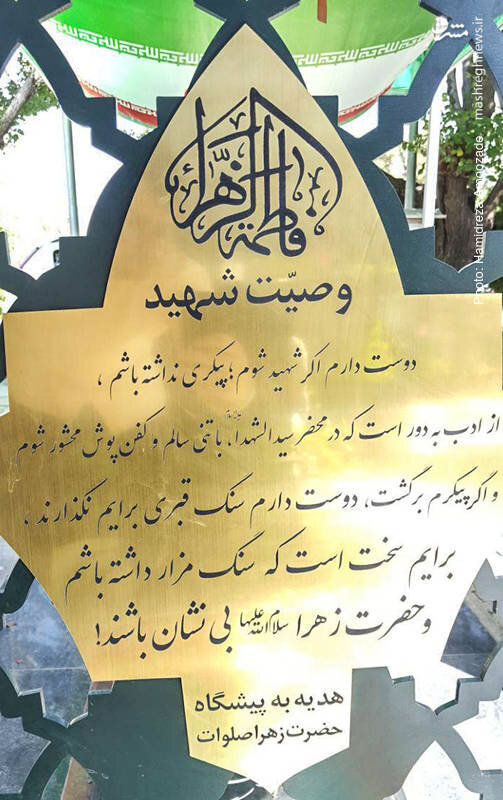 مشرق
mashreghnews.ir
Photo: Hamidreza
فاطمة الزهراء
وصیّت شهید
دوست دارم اگر شهید شوم؛ پیکری نداشته باشم ،
از ادب به دور است که در محضر سید الشهدا، با تنی سالم و کفن پوش محشور شوم
و اگر پیکرم برگشت، دوست دارم سنگ قبری برایم نگذارند ،
برایم سخت است که سنگ مزار داشته باشم
و حضرت زهرا سلام الله علیها بی نشان باشند!
هدیه به پیشگاه
حضرت زهرا صلوات